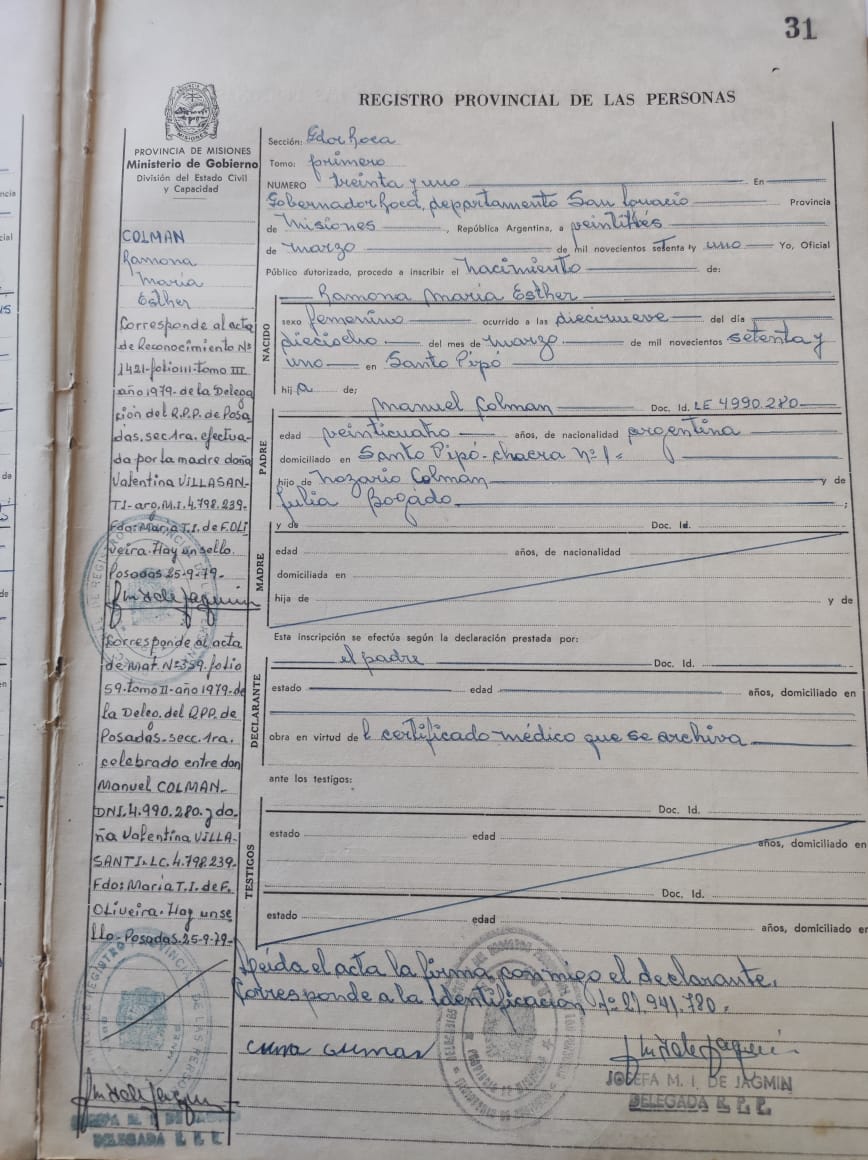 31
REGISTRO PROVINCIAL DE LAS PERSONAS
PROVINCIA DE MISIONES
Ministerio de Gobierno
División del Estado Civil
y Capacidad
COLMAN
Ramona
María
Esther
Corresponde al acta
de Reconocimiento Nº
1421-folio111-tomo III
año 1979-de la Delega
ción del R.P.P. de Posa
das. sec. 1ra. efectua-
da por la madre doña
Valentina VILLASAN-
TI-arg. M.I. 4.798.239-
Fdo: María T.I. de F. OLI
veira. Hay un sello.
Posadas 25-9-79-
Corresponde al acta
de Mat. Nº 359. folio
59. tomo II-año 1979-de
la Deleg. del RPP. de
Posadas-secc. 1ra.
celebrado entre don
Manuel COLMAN-
DNI. 4.990.280. y do-
ña Valentina VILLA-
SANTI-LC. 4.798.239-
Fdo: María T.I. de F.
Oliveira. Hay un se
llo-Posadas. 25-9-79-
DELEGADA R. P. P.
Sección: Gdor Roca
Tomo: primero
NUMERO treinta y uno En
Gobernador Roca, departamento San Ignacio Provincia
de Misiones, República Argentina, a veintitrés
de marzo de mil novecientos setenta ty uno Yo, Oficial
Público autorizado, procedo a inscribir el nacimiento de:
NACIDO
Ramona María Esther
sexo femenino ocurrido a las diecinueve del día
dieciocho del mes de marzo de mil novecientos setenta y
uno en Santo Pipó
hija de;
PADRE
Manuel Colman Doc. Id. LE 4990.280
edad veinticuatro años, de nacionalidad argentina
domiciliado en Santo Pipó-chacra nº 1-
hijo de Nazario Colman y de
Julia Bogado ;
MADRE
y de Doc. Id.
edad años, de nacionalidad
domiciliada en
hija de y de
Esta inscripción se efectúa según la declaración prestada por:
DECLARANTE
el padre Doc. Id.
estado edad años, domiciliado en
obra en virtud de l certificado médico que se archiva
ante los testigos:
TESTIGOS
Doc. Id.
estado edad años, domiciliado en
Doc. Id.
estado edad años, domiciliado en
Leída el acta la firma conmigo el declarante.
Corresponde a la Identificación Nº 21.941.780.
JOSEFA M. I. DE JAGMIN
DELEGADA R. P. P.